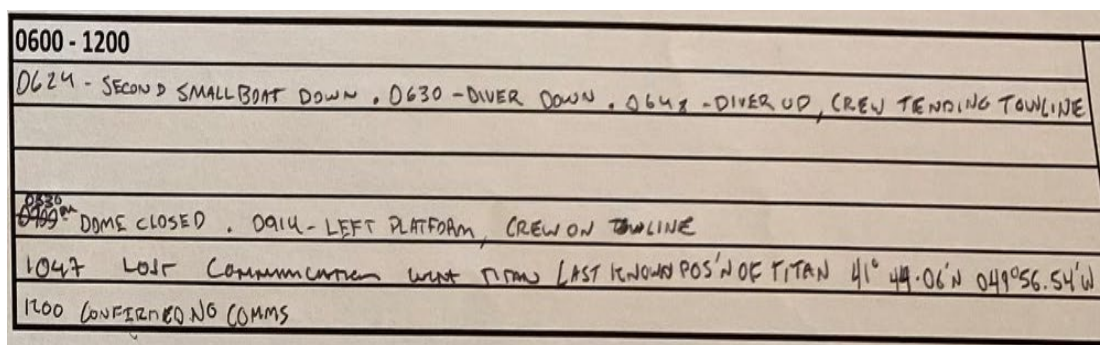 0600 - 1200
0624 - SECOND SMALL BOAT DOWN . 0630 - DIVER DOWN . 0648 - DIVER UP, CREW TENDING TOWLINE
0836
DOME CLOSED . 0914 - LEFT PLATFORM, CREW ON TOWLINE
1047 LOST Communication WITH TITAN LAST KNOWN POS'N OF TITAN 41° 44.06'N 049°56.54'W
1200 CONFIRMED NO COMMS